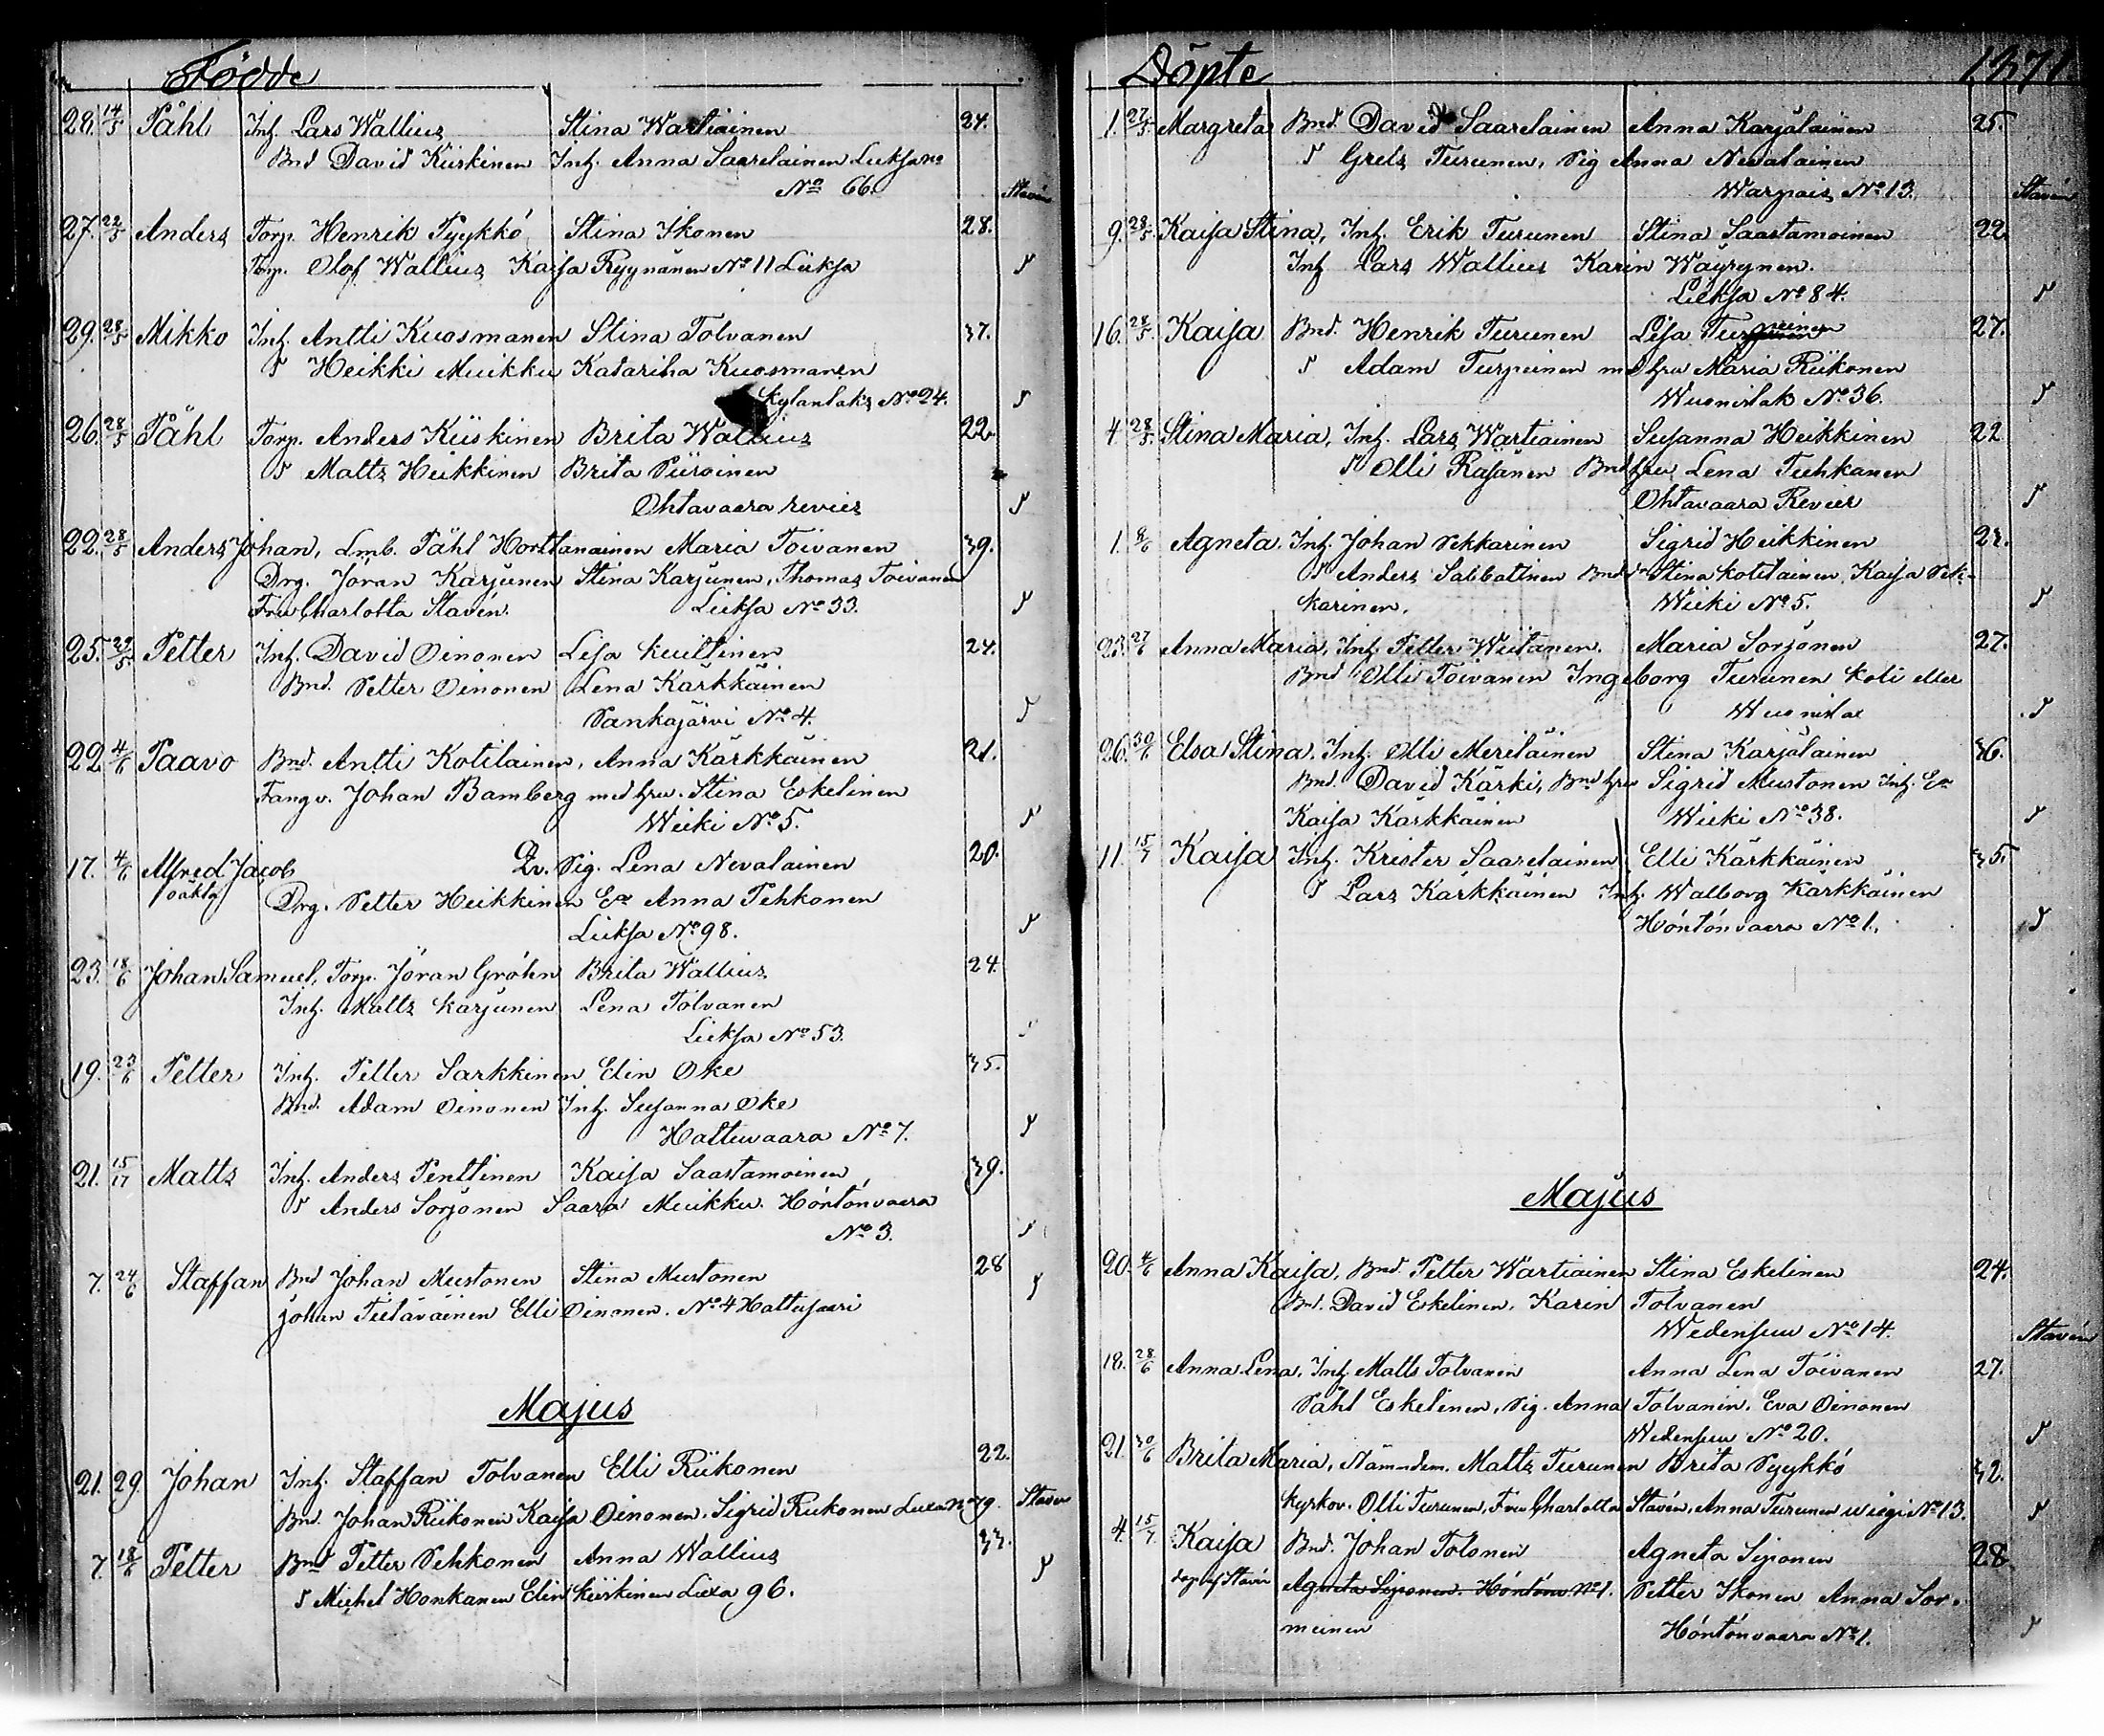 Födde
28. 14/5 Påhl Inh. Lars Wallius Stina Wartiainen 24.
Bnd David Kiiskinen Inh. Anna Saarelainen Lieksa
No 66. Stavén
27. 22/5 Anders Torp. Henrik Pyykkö Stina Ikonen 28.
Torp. Olof Wallius Kaisa Ryynänen No 11 Lieksa
29. 28/5 Mikko Inh. Antti Kuosmanen Stina Tolvanen 37.
Heikki Muikku Katariha Kuosmanen
Kylanlaks No 24.
26. 28/5 Påhl Torp. Anders Kiiskinen Brita Wallius 22.
Matts Heikkinen Brita Piiroinen
Ohtavaara revier
22. 28/5 Anders Johan, Lmb. Påhl Horttanainen Maria Toivanen 39.
Drg. Jöran Karjunen Stina Karjunen, Thomas Toivanen
Fru Charlotta Stavén. Lieksa No 33.
25. 29/5 Petter Inh. David Oinonen Lisa Kuittinen 24.
Bnd. Petter Oinonen Lena Kärkkäinen
Pankajärvi No 4.
22 4/6 Paavo Bnd. Antti Kotilainen, Anna Kärkkäinen 21.
Fangv. Johan Bamberg med hru. Stina Eskelinen
Wieki No 5.
17. 4/6 Alfred Jacob Qv. Pig. Lena Nevalainen 20.
oäkta Drg. Petter Heikkinen Ea Anna Pehkonen
Lieksa No 98.
23. 18/6 Johan Samuel, Torp. Jöran Gröhn Brita Wallius 24.
Inh. Matts Karjunen Lena Tolvanen
Lieksa No 53.
19. 23/6 Petter Inh. Petter Sarkkinen Elin Oke 35.
Bnd. Adam Oinonen Inh. Susanna Oke
Hattuvaara No 7.
21. 15/17 Matts Inh. Anders Penttinen Kaisa Saastamoinen 39.
Anders Sorjonen Saara Muikku. Höntönvaara
No 3.
7. 24/6 Staffan Bnd Johan Mustonen Stina Mustonen 28
Johan Tietäväinen Elli Oinonen. No 4 Hattusaari
Majus
21. 29. Johan Inh. Staffan Tolvanen Elli Riikonen 22.
Bnd. Johan Riikonen Kaisa Oinonen. Sigrid Riikonen Lixa No 79. Stavén
7. 18/6 Petter Bnd Petter Pehkonen Anna Wallius 33.
Michel Honkanen Elin Kiiskinen Lixa 96.
Döpte 1871.
1. 27/5 Margreta Bnd. David Saarelainen Anna Karjalainen 25.
Grels Turunen, Pig Anna Nevalainen
Warpais No 13. Stavén
9. 28/5 Kaisa Stina, Inh. Erik Turunen Stina Saastamoinen 22.
Inh Lars Wallius Karin Wäyrynen.
Lieksa No 84.
16. 28/5. Kaisa Bnd. Henrik Turunen Lisa Turpeinen 27.
Adam Turpeinen md hru Maria Riikonen
Wuonislak No 36.
4. 28/5 Stina Maria, Inh. Lars Wartiainen Susanna Heikkinen 22
Olli Räsänen Bnd hru Lena Tuhkanen
Ohtavaara Revier
1. 9/6 Agneta. Inh. Johan Pekkarinen Sigrid Heikkinen 22.
Anders Sallatinen Bnd Stina Kotilainen, Kaisa Pek-
karinen. Wieki No 5.
23. 27/6 Anna Maria, Inh. Petter Weitanen. Maria Sorjonen 27.
Bnd Olli Toivanen Ingeborg Turunen Koli eller
Wuonislax
26. 30/6 Elsa Stina. Inh. Olli Meriläinen Stina Karjalainen 36.
Bnd. David Kärki, Bnd hru Sigrid Mustonen Inh. Ea
Kaisa Kärkkäinen Wieki No 38.
11. 15/7 Kaisa Inh. Krister Saarelainen Elli Kärkkäinen 35.
Lars Kärkkäinen Inh. Walborg Kärkkäinen
Höntönvaara No 1.
Majus
20. 4/6 Anna Kaisa, Bnd. Petter Wartiainen Stina Eskelinen 24.
Bnd. David Eskelinen, Karin Tolvanen
Wedensuu No 14. Stavén
18. 28/6 Anna Lena. Inh. Matts Tolvanen Anna Lena Toivanen 27.
Påhl Eskelinen, Pig. Anna Tolvanin. Eva Oinonen
Wedensuu No 20.
21. 30/6 Brita Maria, Nämndem. Matts Turunen Brita Pyykkö 32.
Kyrkov. Olli Turunen, Fru Charlotta Stavén, Anna Turunen Wiegi No 13.
4. 15/7. Kaisa Bnd. Johan Tolonen Agneta Siponen 28.
döp. af Stavén Agneta Siponen. Höntönv No 1. Petter Ikonen Anna Sor-
meinen Höntönvaara No 1.